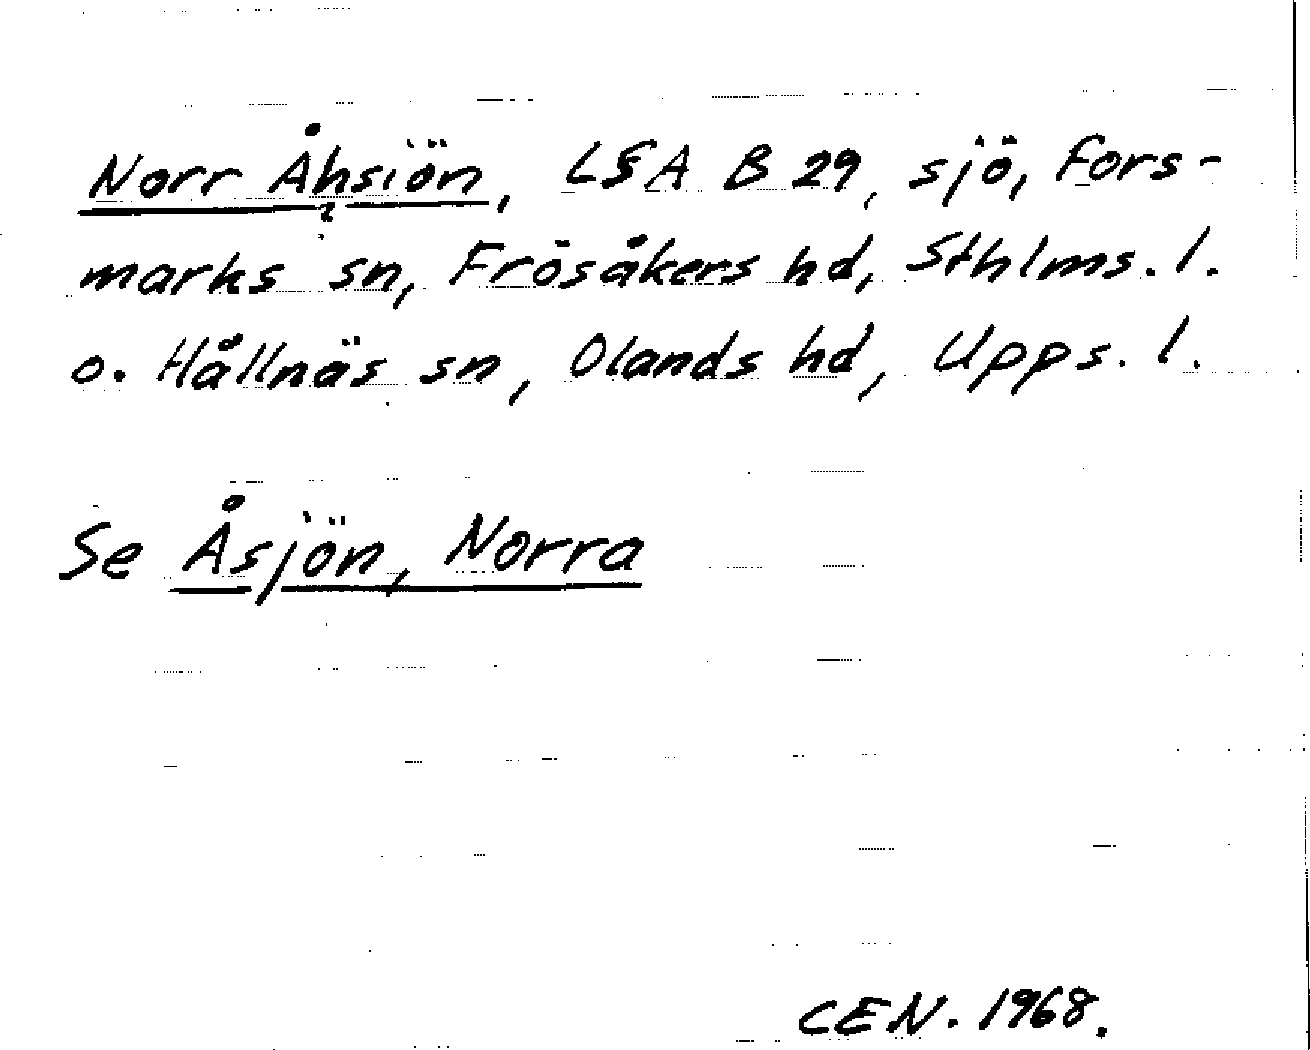 Norr Åhsiön, LSA B 29, sjö, Fors-
?
marks sn, Frösåkers hd, Sthlms. l.
o. Hållnäs sn, Olands hd, Upps. l.
Se Åsjön, Norra
CEN. 1968.